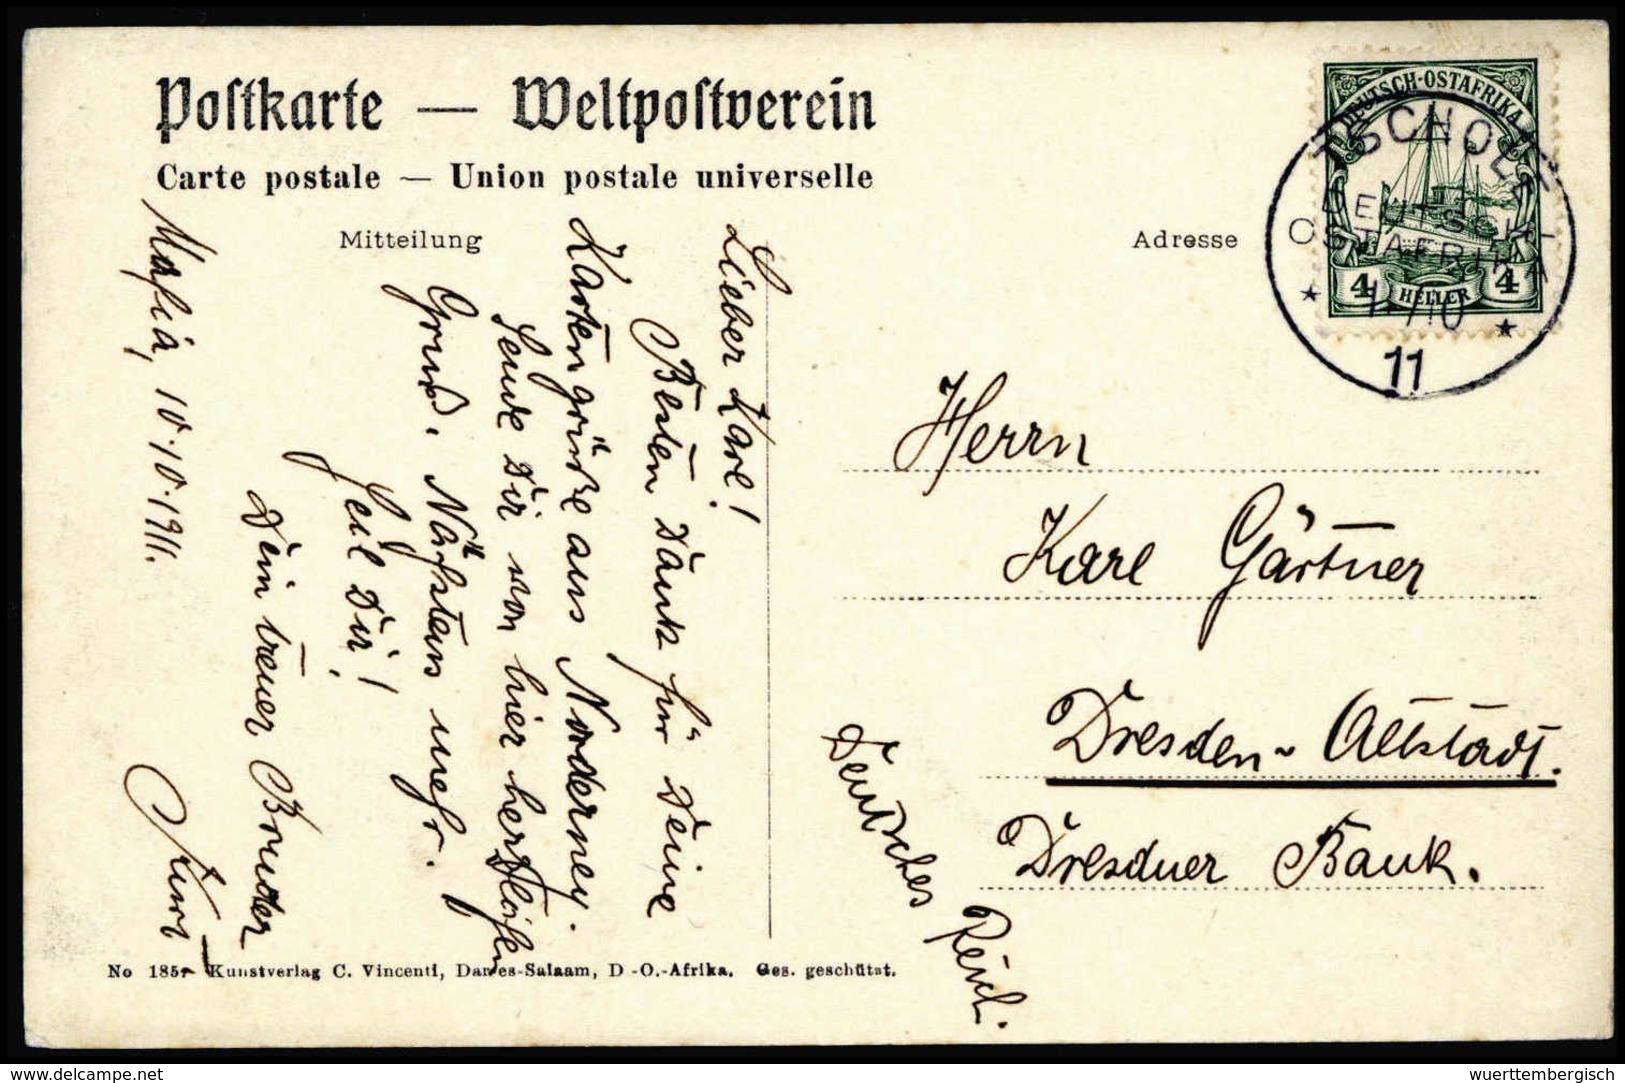 Postkarte — Weltpostverein
Carte postale — Union postale universelle
Mitteilung
Adresse
DEUTSCH-OSTAFRIKA
4 HELLER 4
TSCHOLE
DEUTSCH-
OSTAFRIKA
11
Mafia, 10.10.1911.
Lieber Karl!
Besten Dank für Deine
Kartengrüße aus Norderney.
Sende Dir von hier
Gruß. Nächstens mehr.
Heil Dir!
Dein treuer Bruder
Kurt
Herrn
Karl Gärtner
Dresden-Altstadt.
Dresdner Bank.
Deutsches Reich.
No 185 Kunstverlag C. Vincenti, Dar-es-Salaam, D.-O.-Afrika. Ges. geschützt.
www.delcampe.net
wuerttembergisch